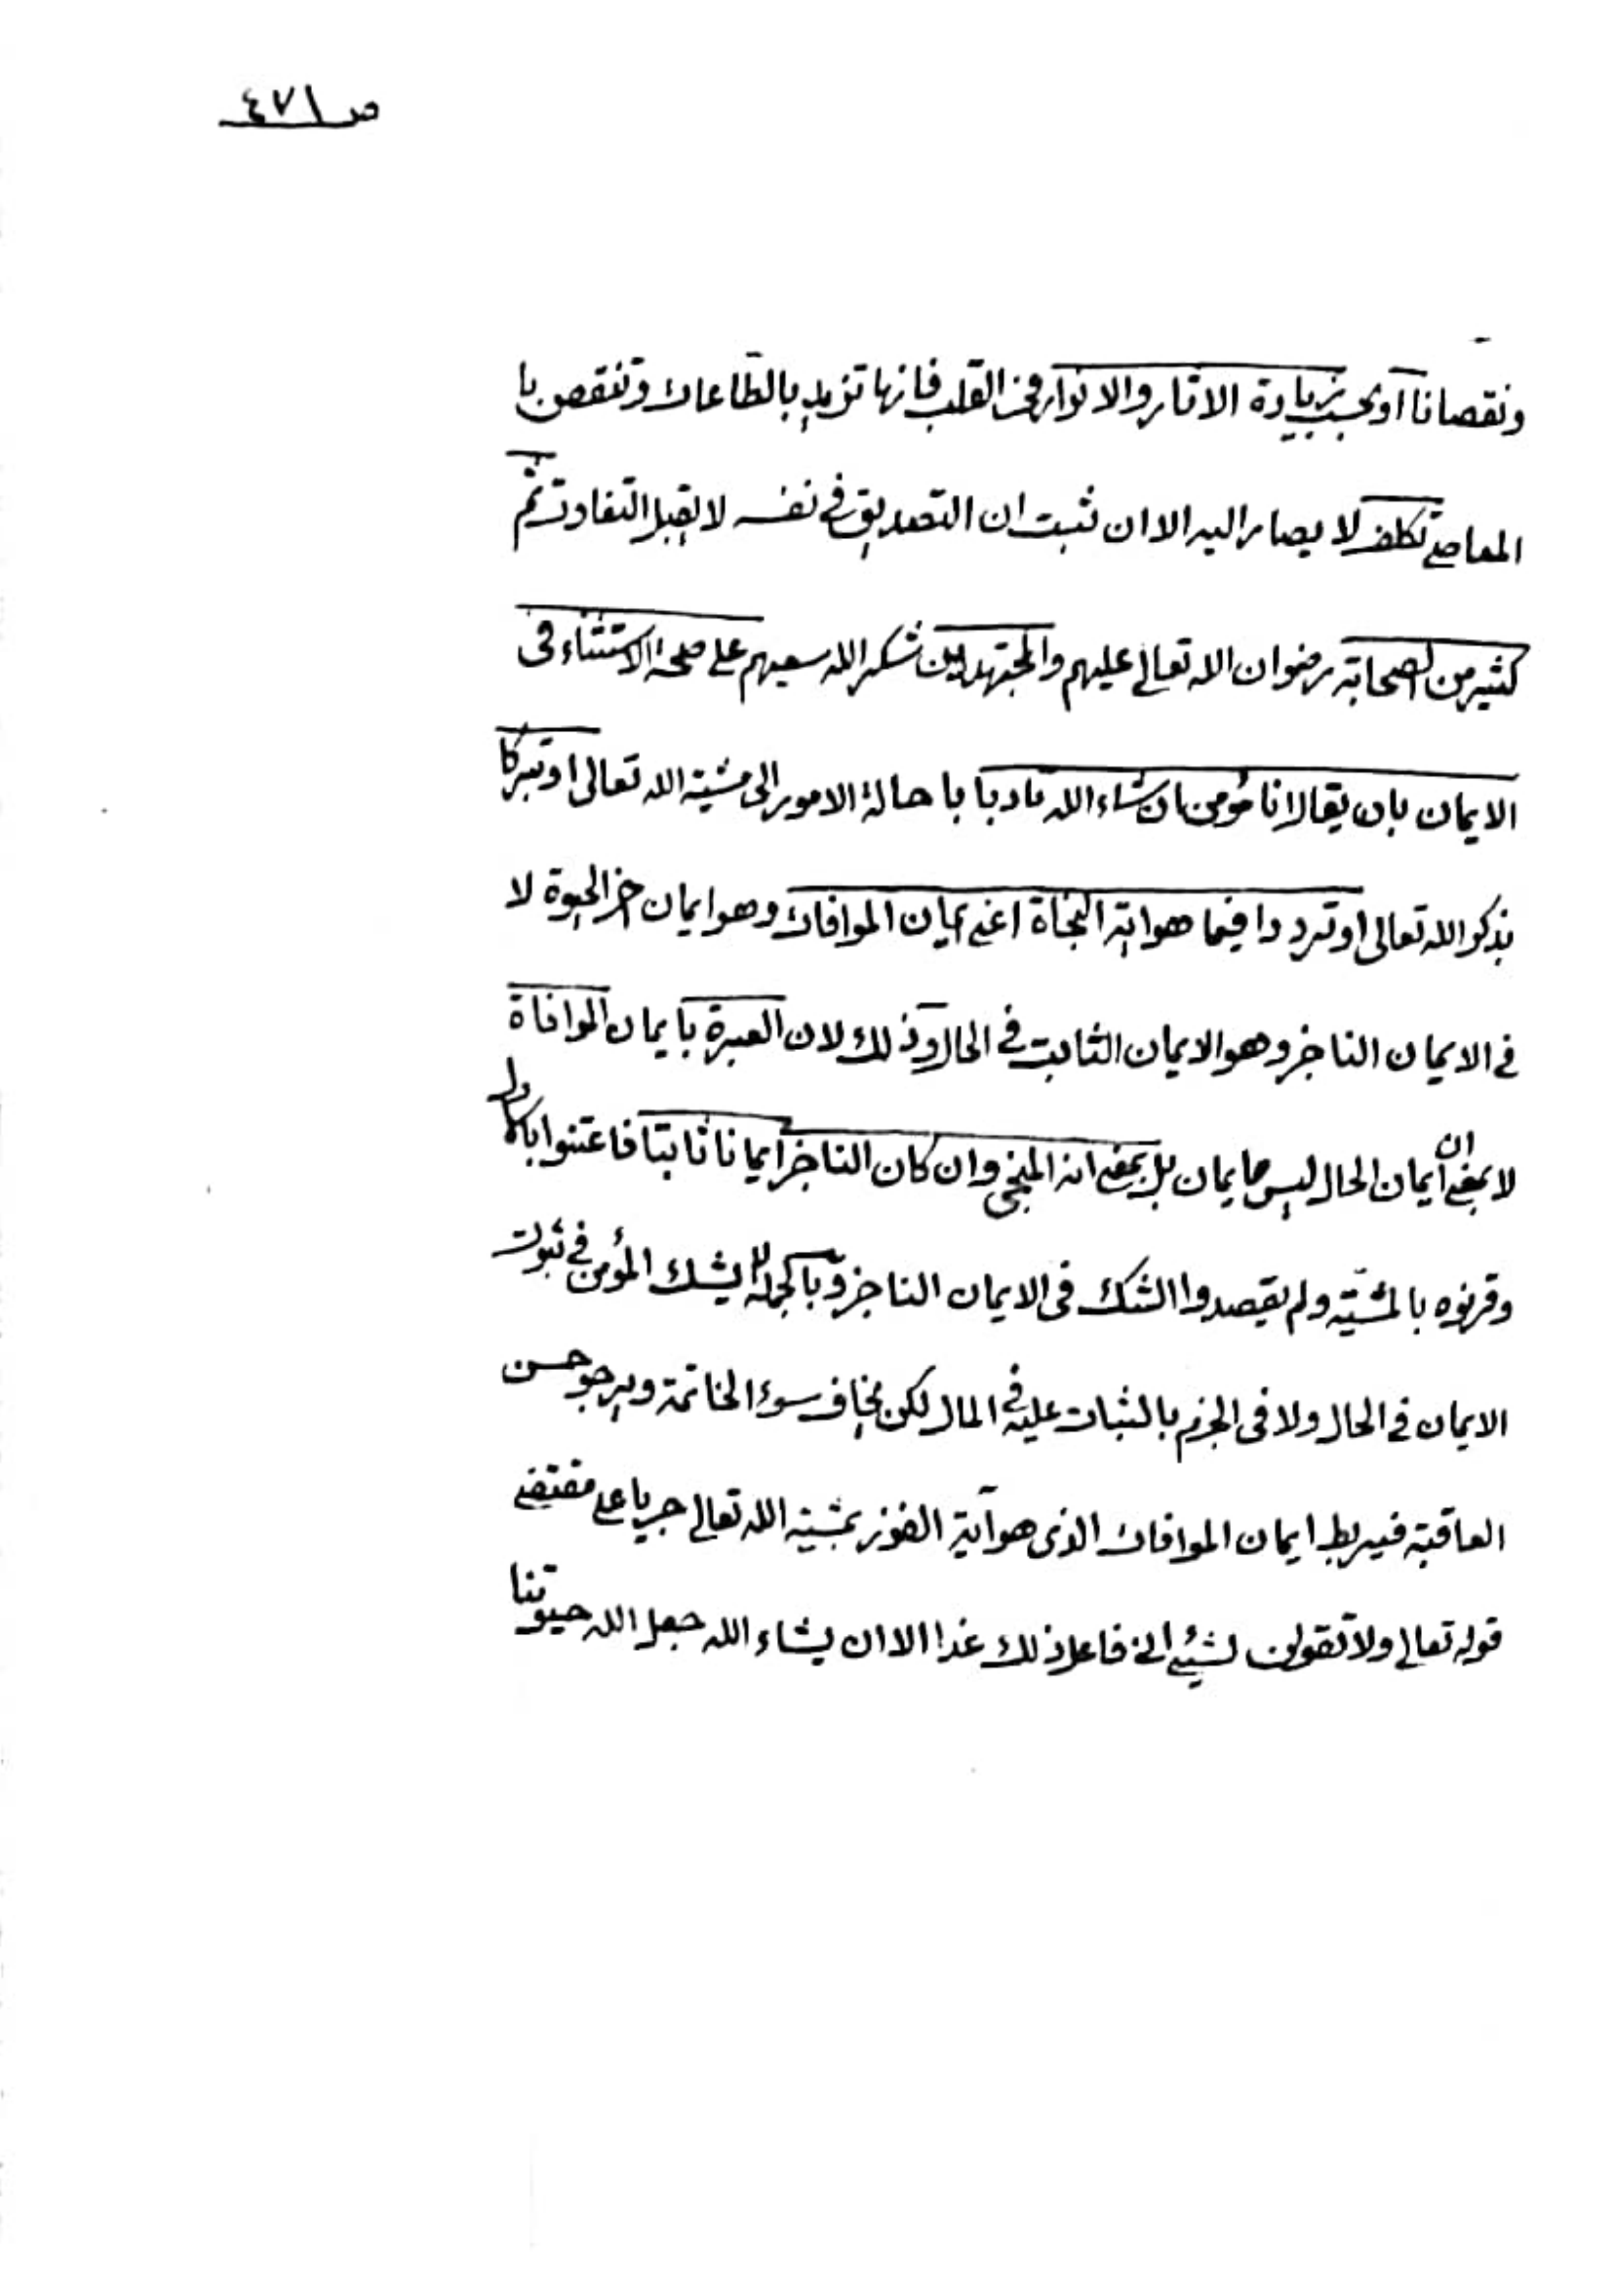 ص ٤٧١
ونقصانا او بحسب زيادة الاثار والانوار فى القلب فانها تزيد بالطاعات وتنقص با
المعاصى تكلف لا يصار اليه الا ان ثبت ان التصديق فى نفسه لا يقبل التفاوت ثم
كثير من الصحابة رضوان الله تعالى عليهم والمجتهدين شكر الله سعيهم على صحة الاستثناء فى
الايمان بان يقال انا مؤمن ان شاء الله تادبا باحالة الامور الى مشية الله تعالى او تبركا
بذكر الله تعالى او ترددا فيما هو اية النجاة اعنى ايمان الموافات وهو ايمان اخر الحيوة لا
فى الايمان الناجز وهو الايمان الثابت فى الحال وذلك لان العبرة بايمان الموافاة
لا بمعنى ان ايمان الحال ليس بايمان بل بمعنى انه المنجى وان كان الناجز ايمانا ثابتا فاعتنوا بالاول
وقرنوه بالمشية ولم يقصدوا الشك فى الايمان الناجز وبالجملة لا يشك المؤمن فى ثبوت
الايمان فى الحال ولا فى الجزم بالثبات عليه فى المال لكن يخاف سوء الخاتمة ويرجو حسن
العاقبة فيربط ايمان الموافات الذى هو آية الفوز بمشية الله تعالى جريا على مقتضى
قوله تعالى ولا تقولن لشئ انى فاعل ذلك غدا الا ان يشاء الله جعل الله حيوتنا